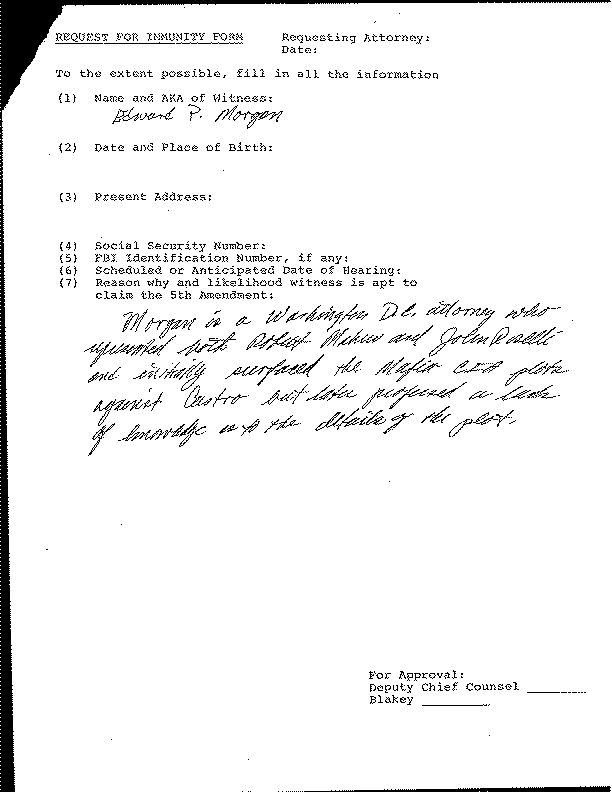 REQUEST FOR IMMUNITY FORM Requesting Attorney:
Date:
To the extent possible, fill in all the information
(1) Name and AKA of Witness:
Edward P. Morgan
(2) Date and Place of Birth:
(3) Present Address:
(4) Social Security Number:
(5) FBI Identification Number, if any:
(6) Scheduled or Anticipated Date of Hearing:
(7) Reason why and likelihood witness is apt to
claim the 5th Amendment:
Morgan is a Washington D.C. attorney who
represented both Robert Maheu and John Roselli
and initially surfaced the Mafia CIA plots
against Castro but later professed a lack
of knowledge as to the details of the plot.
For Approval:
Deputy Chief Counsel ________
Blakey ________